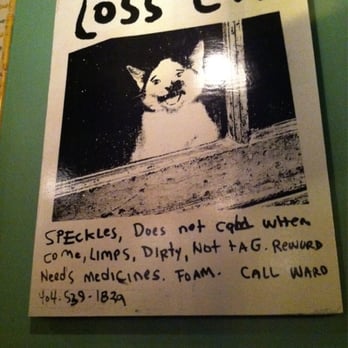 LOSS CAT
SPEckles, Does not cobl when
come, Limps, Dirty, Not tAG. Reword
Needs medicines. FOAM. CALL WARD
404-539-1829